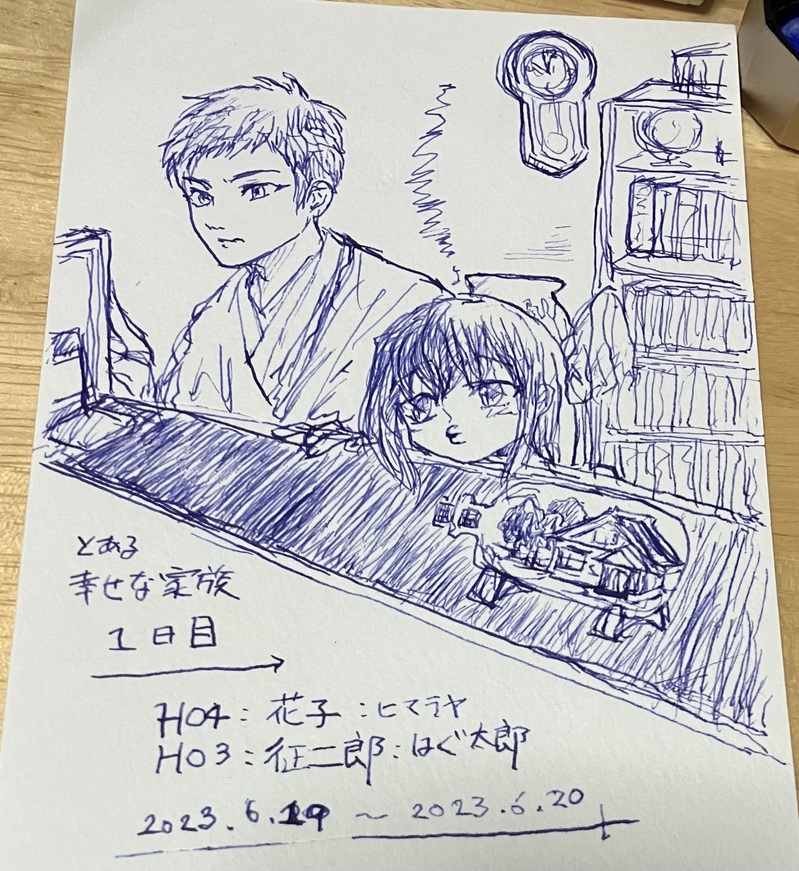 とある
幸せな家族
1日目
H04:花子:ヒマラヤ
H03:征二郎:はぐ太郎
2023.6.19 ~ 2023.6.20